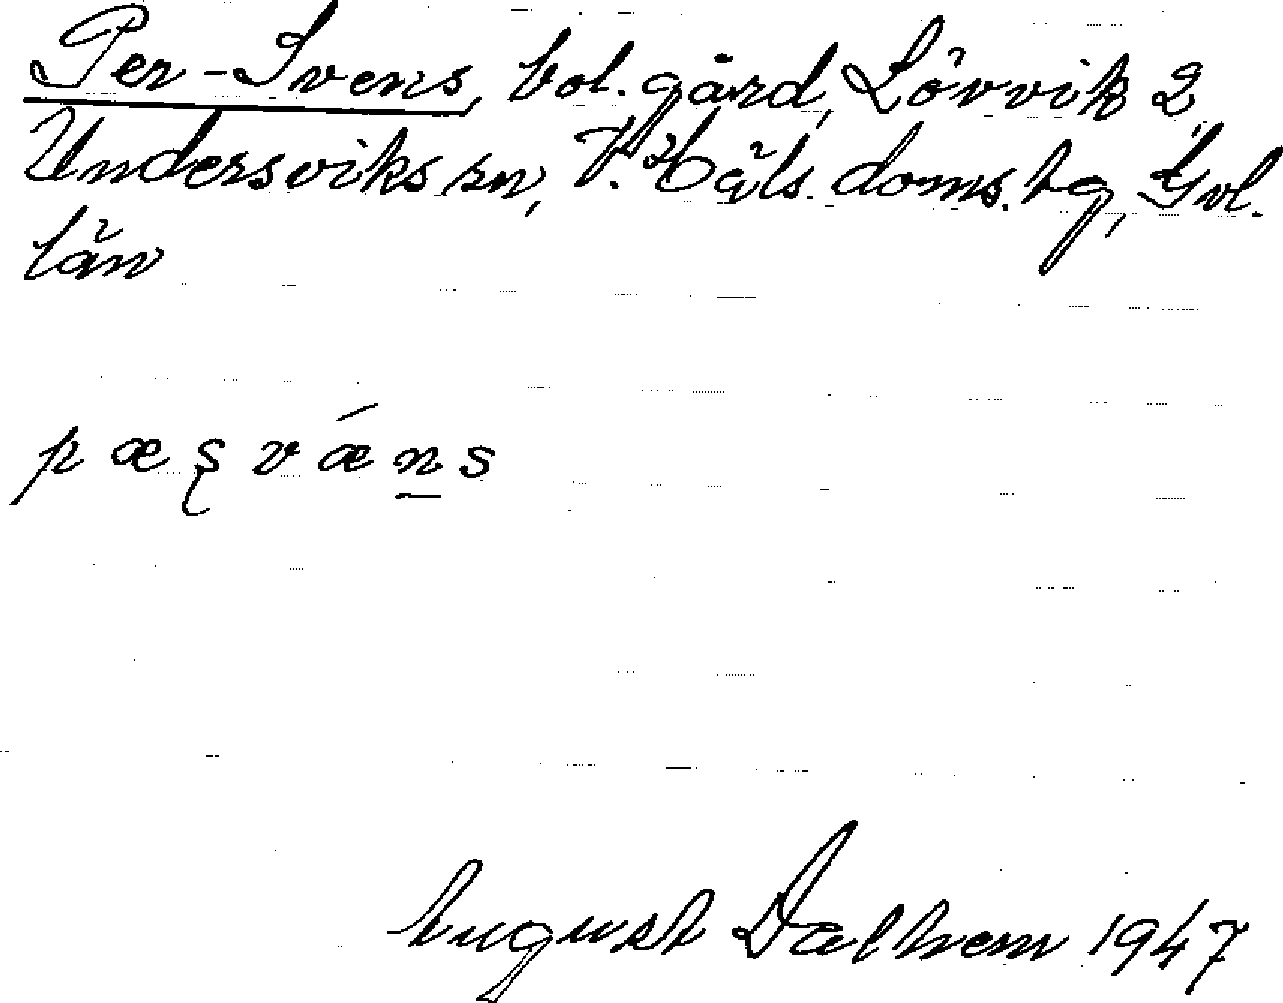 Per-Svens, bol.gård, Lövvik 2,
Undersviks sn, V. Häls. doms. hg, Gvl.
län
pæʂvǽn̲s
August Dalhem 1947